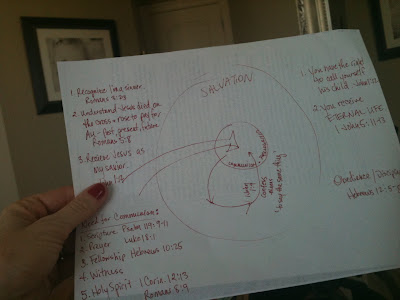 SALVATION
1. Recognize I'm a sinner.
Romans 3:23
2. Understand Jesus died on
the cross + rose to pay for
my - past, present, future
Romans 5:8
3. Receive Jesus as
my savior.
John 1:12
Need for Communion:
1. Scripture Psalm 119:9-11
2. Prayer Luke 18:1
3. Fellowship Hebrews 10:25
4. Witness
5. Holy Spirit 1 Corin. 12:13
Romans 8:9
communion
confess
"to say the same thing"
1. You have the right
to call yourself
His child John 1:12
2. You receive
ETERNAL LIFE
John 5:11-13
Obedience /
Hebrews 12:5-